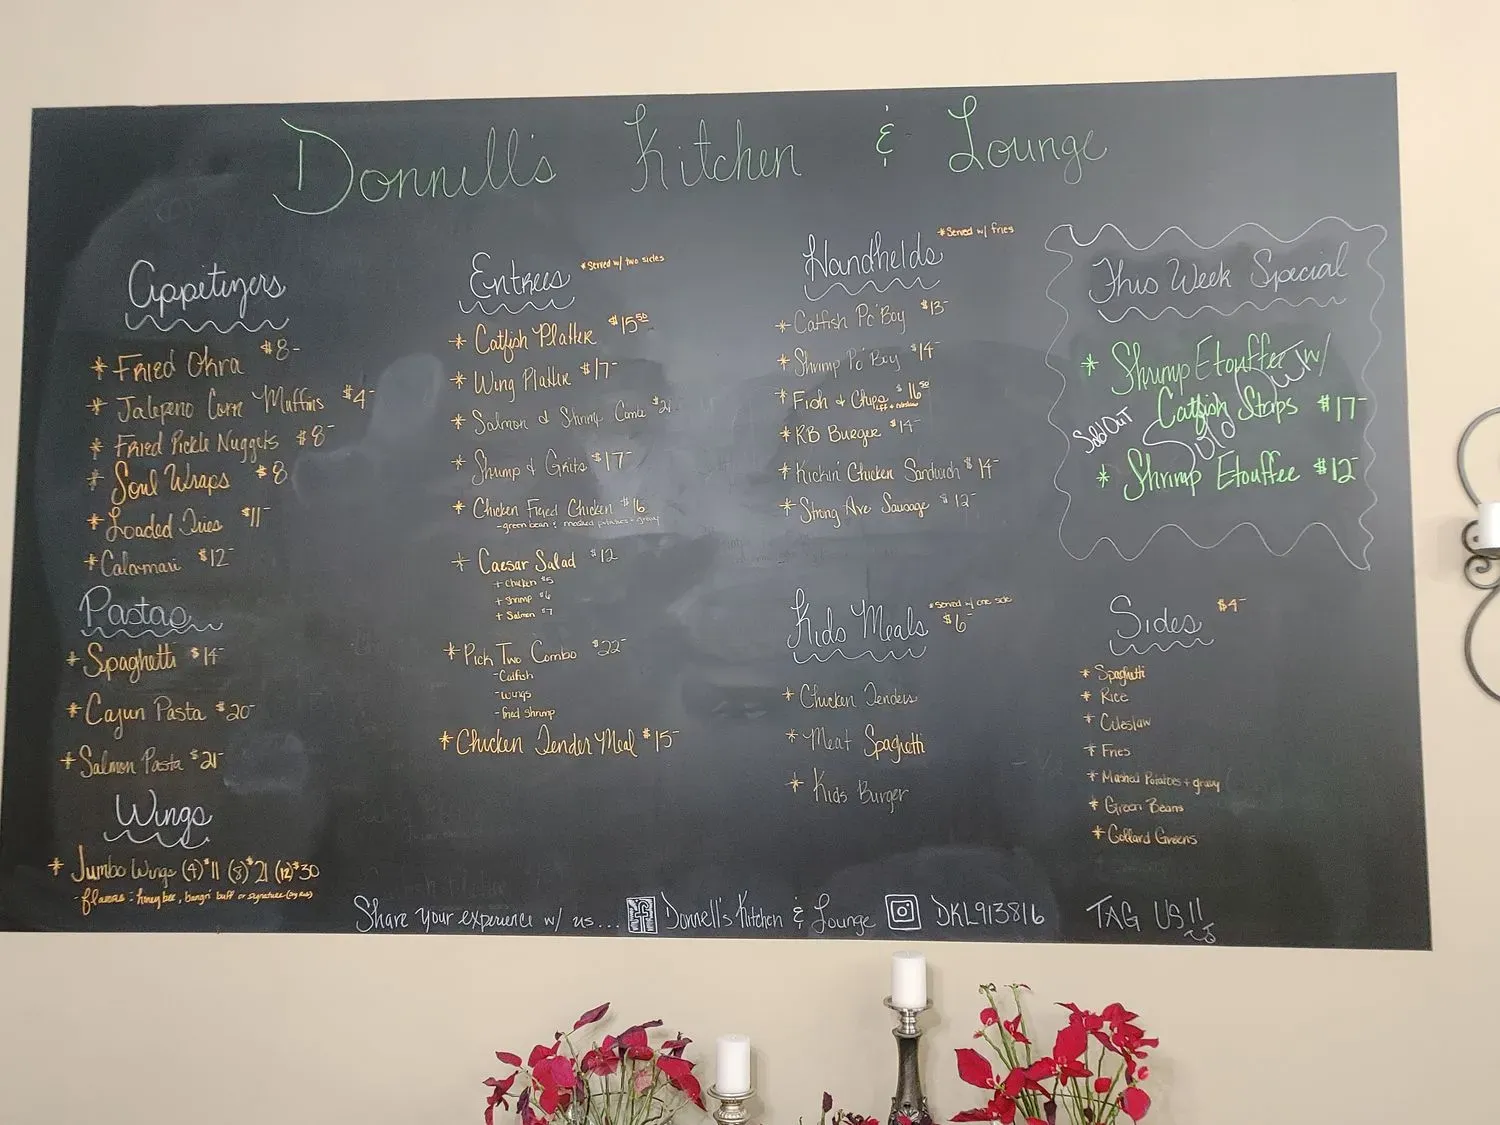 Donnell's Kitchen & Lounge
Appetizers
* Fried Okra $8-
* Jalepeno Corn Muffins $4-
* Fried Pickle Nuggets $8-
* Soul Wraps $8
* Loaded Fries $11-
* Calamari $12-
Pastas
* Spaghetti $14-
* Cajun Pasta $20-
* Salmon Pasta $21-
Wings
* Jumbo Wings (4) $11 (8) $21 (12) $30
- flavors - honey bee, bangn' buff or signature (dry rub)
Entrees *Served w/ two sides
* Catfish Platter $15.50
* Wing Platter $17-
* Salmon & Shrimp Combo $21
* Shrimp & Grits $17-
* Chicken Fried Chicken $16
- green bean & mashed potatoes + gravy
* Caesar Salad $12
+ Chicken $5
+ Shrimp $6
+ Salmon $7
* Pick Two Combo $22-
- Catfish
- Wings
- fried Shrimp
* Chicken Tender Meal $15-
Handhelds *Served w/ fries
* Catfish Po'Boy $13-
* Shrimp Po'Boy $14-
* Fish & Chips $16.50
* RB Burger $14-
* Kickin' Chicken Sandwich $14-
* Strong Ave Sausage $12-
Kids Meals *Served w/ one side $6-
* Chicken Tenders
* Meat Spaghetti
* Kids Burger
This Week Special
* Shrimp Etouffee w/
Catfish Strips $17-
Sold Out
Sold Out
* Shrimp Etouffee $12-
Sides $4-
* Spaghetti
* Rice
* Coleslaw
* Fries
* Mashed Potatoes + gravy
* Green Beans
* Collard Greens
Share your experience w/ us... f Donnell's Kitchen & Lounge DKL913816 TAG US!!